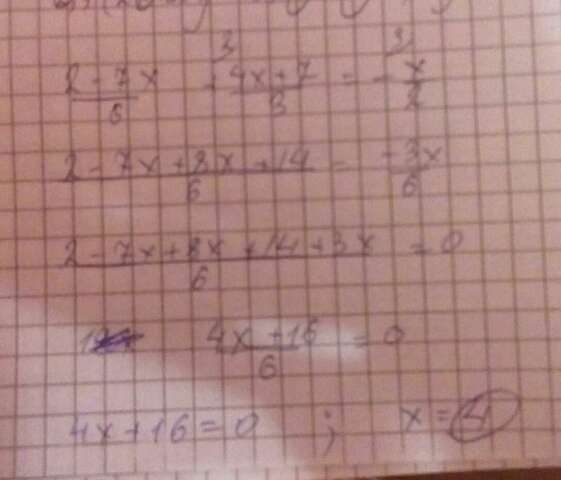 3 3
(2 - 7x)/6 + (4x + 7)/3 = - x/2
(2 - 7x + 8x + 14)/6 = (-3x)/6
(2 - 7x + 8x + 14 + 3x)/6 = 0
(4x + 16)/6 = 0
4x + 16 = 0 ; x =